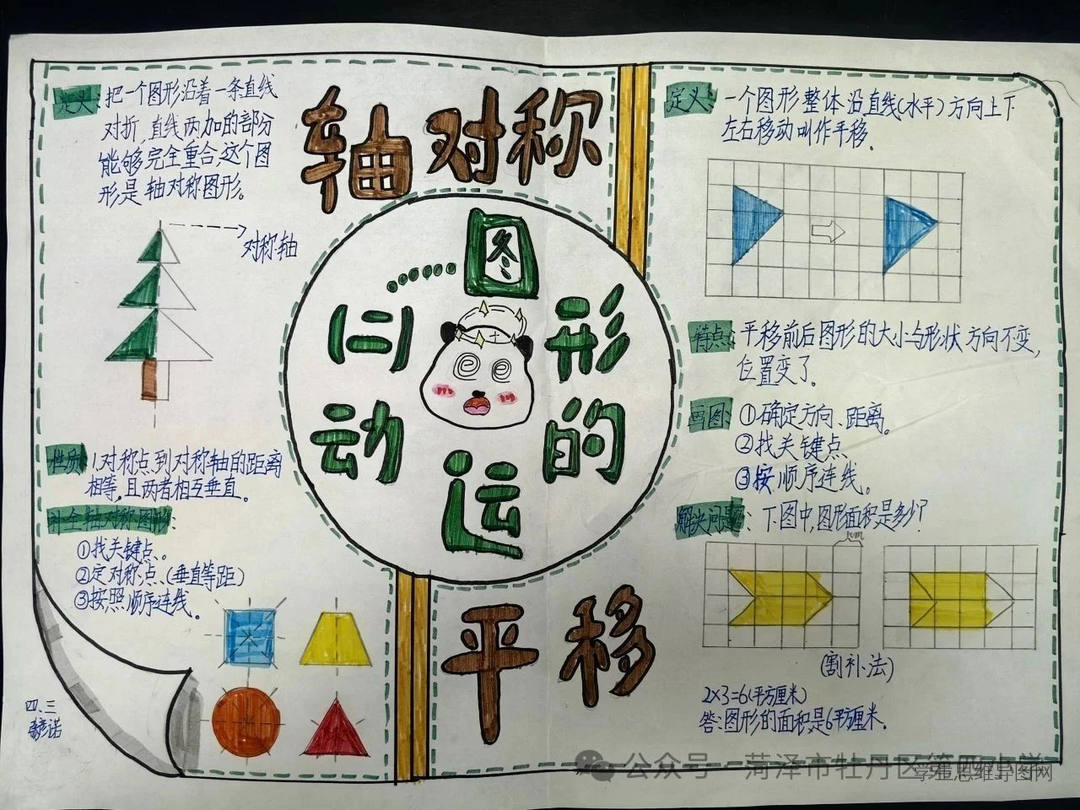 轴对称
图形的运动(二)
平移
定义:把一个图形沿着一条直线
对折,直线两加的部分
能够完全重合,这个图
形是轴对称图形。
对称轴
性质:1.对称点到对称轴的距离
相等,且两者相互垂直。
补全轴对称图形:
①找关键点。
②定对称点、(垂直等距)
③按照顺序连线。
四、三
定义:一个图形整体沿直线(水平)方向上下
左右移动叫作平移.
特点:平移前后图形的大小与形状方向不变,
位置变了.
画图:①确定方向、距离。
②找关键点
③按顺序连线。
解决问题:下图中,图形面积是多少?
1cm
(割补法)
2×3=6(平方厘米)
答:图形的面积是6平方厘米.
公众号·菏泽市牡丹区第四小学
思维导图网